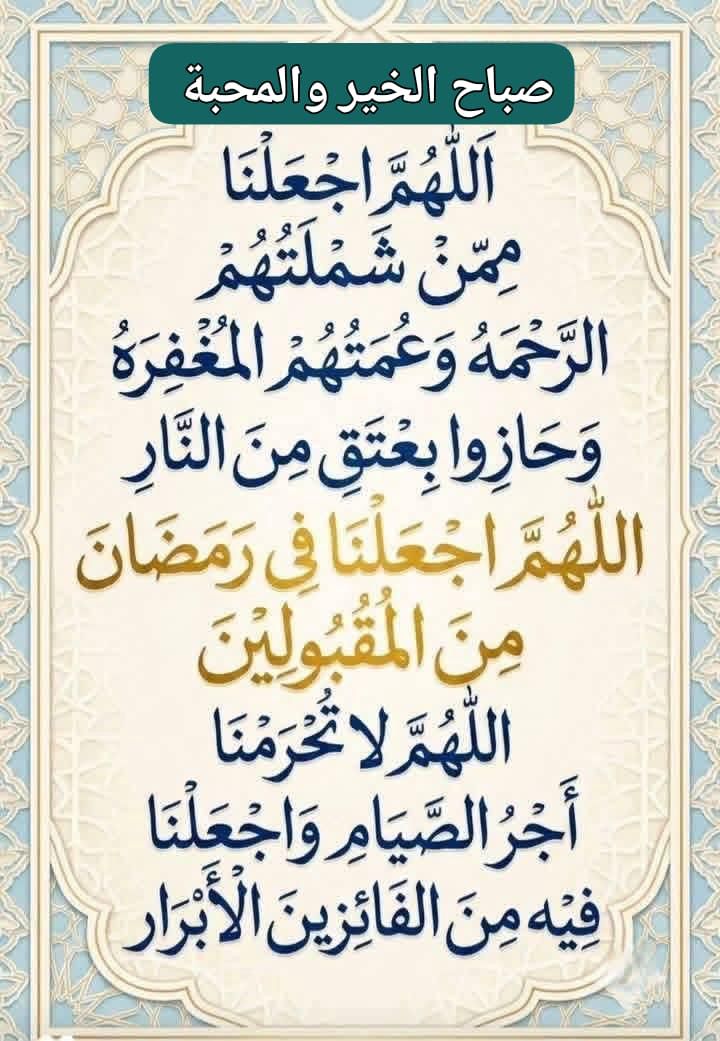 صباح الخير والمحبة
اَللّٰهُمَّ اجْعَلْنَا
مِمّنْ شَمْلَتُهُمْ
الرَّحْمَهُ وَعُمَتُهُمْ المُغْفِرَهُ
وَحَازِوا بِعْتَقِ مِنَ النَّارِ
اللّٰهُمَّ اجْعَلْنَا فِي رَمَضَانَ
مِنَ الْمُقْبُولِيْنَ
اللّٰهُمَّ لا تُحْرَمْنَا
أَجْرُ الصَّيَامِ وَاجْعَلْنَا
فِيْه مِنَ الفَائِزِينَ الْأَبْرَار